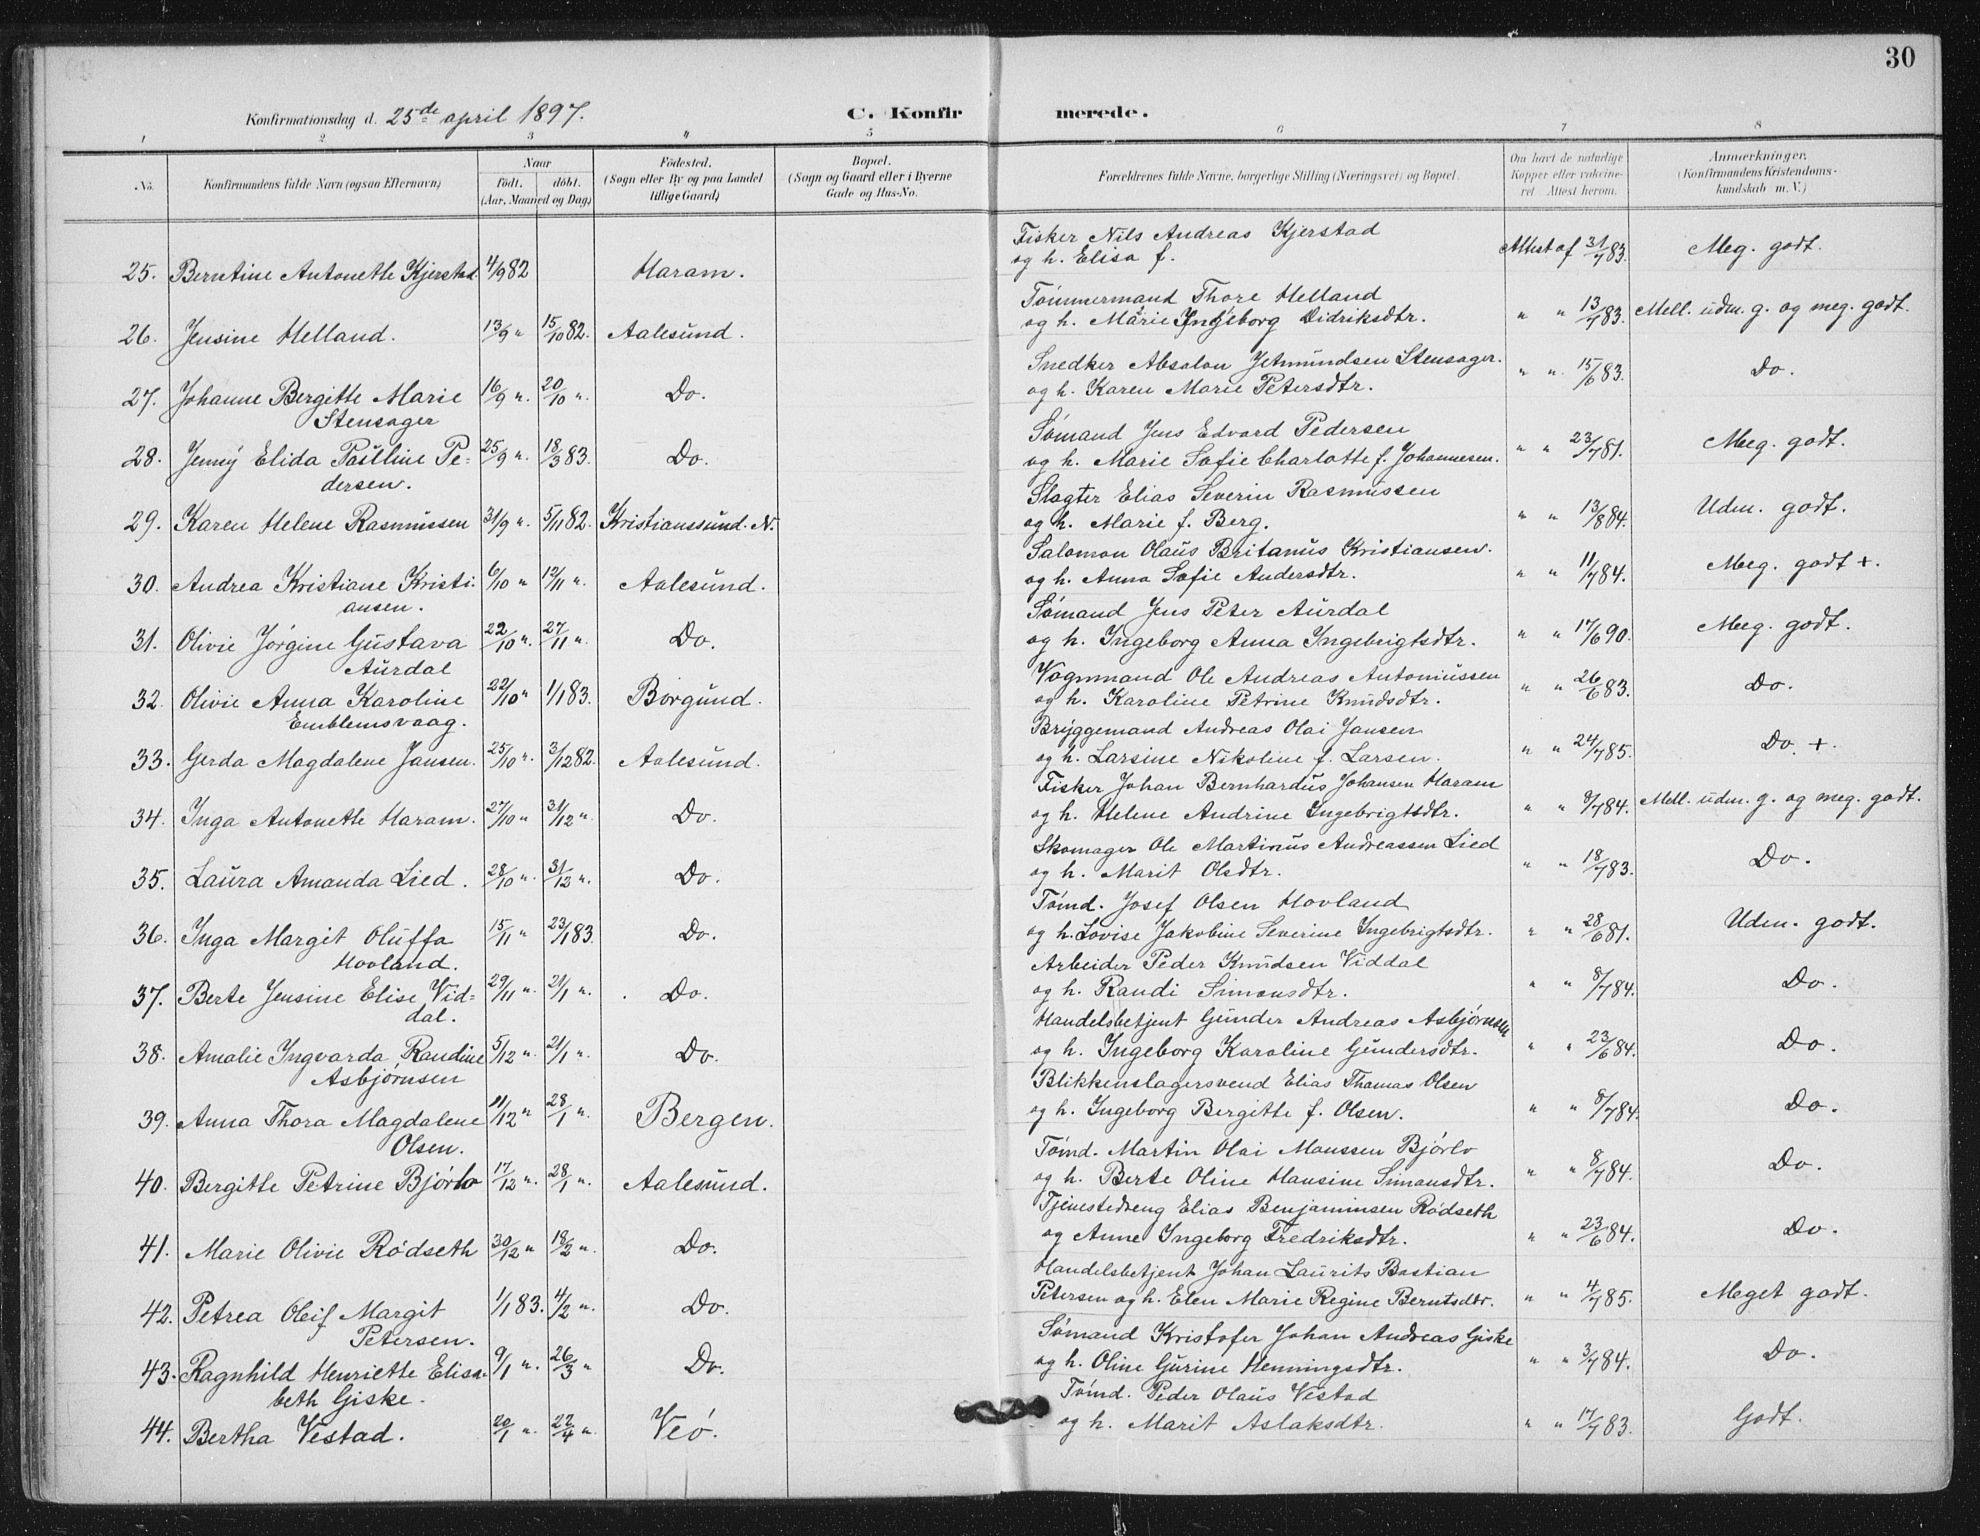 30
Konfirmationsdag d. 25de april 1897. C. Konfirmerede.
1 2 3 4 5 6 7 8
No. Konfirmandens fulde Navn (ogsaa Efternavn) Naar födt. döbt. (Aar, Maaned og Dag) Födested. (Sogn eller By og paa Landet tillige Gaard) Bopæl. (Sogn og Gaard eller i Byerne Gade og Hus-No. Forældrenes fulde Navne, borgerlige Stilling (Næringsvei) og Bopæl. Om havt de naturlige Kopper eller vakcineret. Attest herom. Anmærkninger. (Konfirmandens Kristendomskundskab m. V.)
Fisker Nils Andreas Kjerstad
25. Berntine Antonette Kjerstad 4/9 82 Haram. og h. Elisa f. Attest af 31/7 83. Meg. godt.
Tømmermand Thore Helland
26. Jensine Helland. 13/9 " 15/10 82. Aalesund. og h. Marie Ingeborg Didriksdtr. " " 13/7 83. Mell. udm. g. og meg. godt.
Snedker Absalon Jetmundsen Stensager.
27. Johanne Bergitte Marie 16/9 ". 20/10 ". Do. og h. Karen Marie Petersdtr. " " 15/6 83. Do.
Stensager
Sømand Jens Edvard Pedersen
28. Jenny Elida Pauline Pe- 25/9 ". 18/3 83. Do. og h. Marie Sofie Charlotte f. Johannesen. " " 23/7 81. Meg. godt.
dersen.
Slagter Elias Severin Rasmussen
29. Karen Helene Rasmussen 31/9 ". 5/11 82. Kristianssund. N. og h. Marie f. Berg. " " 13/8 84. Udm. godt.
Salomon Olaus Britanus Kristiansen.
30. Andrea Kristiane Kristi- 6/10 " 12/11 ". Aalesund. og h. Anna Sofie Andersdtr. " " 11/7 84. Meg. godt +.
ansen.
Sømand Jens Peter Aurdal
31. Olivie Jørgine Gustava 22/10 ". 27/11 ". Do. og h. Ingeborg Anna Ingebrigtsdtr. " " 17/6 90. Meg. godt.
Aurdal
Vognmand Ole Andreas Antoniussen
32. Olivie Anna Karoline 22/10 " 1/1 83. Borgund. og h. Karoline Petrine Knudsdtr. " " 26/6 83. Do.
Emblemsvaag.
Bryggemand Andreas Olai Jansen
33. Gerda Magdalene Jansen. 25/10 ". 3/12 82. Aalesund. og h. Larsine Nikoline f. Larsen. " " 24/7 85. Do. +.
Fisker Johan Bernhardus Johansen Haram
34. Inga Antonette Haram. 27/10 " 31/12 " Do. og h. Helene Andrine Ingebrigtsdtr. " " 8/7 84. Mell. udm. g. og meg. godt.
Skomager Ole Martinus Andreassen Lied
35. Laura Amanda Lied. 28/10 ". 31/12 ". Do. og h. Marit Olsdtr. " " 18/7 83. Do.
Tømd. Josef Olsen Hovland
36. Inga Margit Oluffa 15/11 " 23/1 83. Do. og h. Lovise Jakobine Severine Ingebrigtsdtr. " " 28/6 81. Udm. godt.
Hovland.
Arbeider Peder Knudsen Viddal
37. Berte Jensine Elise Vid- 29/11 ". 21/1 ". Do. og h. Randi Simonsdtr. " " 8/7 84. Do.
dal.
Handelsbetjent Gunder Andreas Asbjørnsen
38. Amalie Ingvarda Randine 5/12 ". 21/1 ". Do. og h. Ingeborg Karoline Gundersdtr. " " 23/6 84. Do.
Asbjørnsen
Blikkenslagersvend Elias Thomas Olsen
39. Anna Thora Magdalene 11/12 " 28/1 ". Bergen. og h. Ingeborg Bergitte f. Olsen. " " 8/7 84. Do.
Olsen.
Tømd. Martin Olai Monssen Bjørlo
40. Bergitte Petrine Bjørlo 17/12 ". 28/1 ". Aalesund. og h. Berte Oline Hansine Simonsdtr. " " 8/7 84. Do.
Tjenestedreng Elias Benjaminsen Rødseth
41. Marie Olivie Rødseth 30/12 " 18/2 ". Do. og Anne Ingeborg Fredriksdtr. " " 23/6 84. Do.
Handelsbetjent Johan Laurits Bastian
42. Petrea Oleif Margit 1/1 83. 4/2 ". Do. Petersen og h. Elen Marie Regine Berntsdtr. " " 4/7 85. Meget godt.
Petersen.
Sømand Kristofer Johan Andreas Giske
43. Ragnhild Henriette Elisa- 9/1 ". 26/3 " Do. og h. Oline Gurine Henningsdtr. " " 3/7 84. Do.
beth Giske.
Tømd. Peder Olaus Vestad
44. Bertha Vestad. 20/1 ". 22/4 ". Veø. og h. Marit Aslaksdtr. " " 17/7 83. Godt.